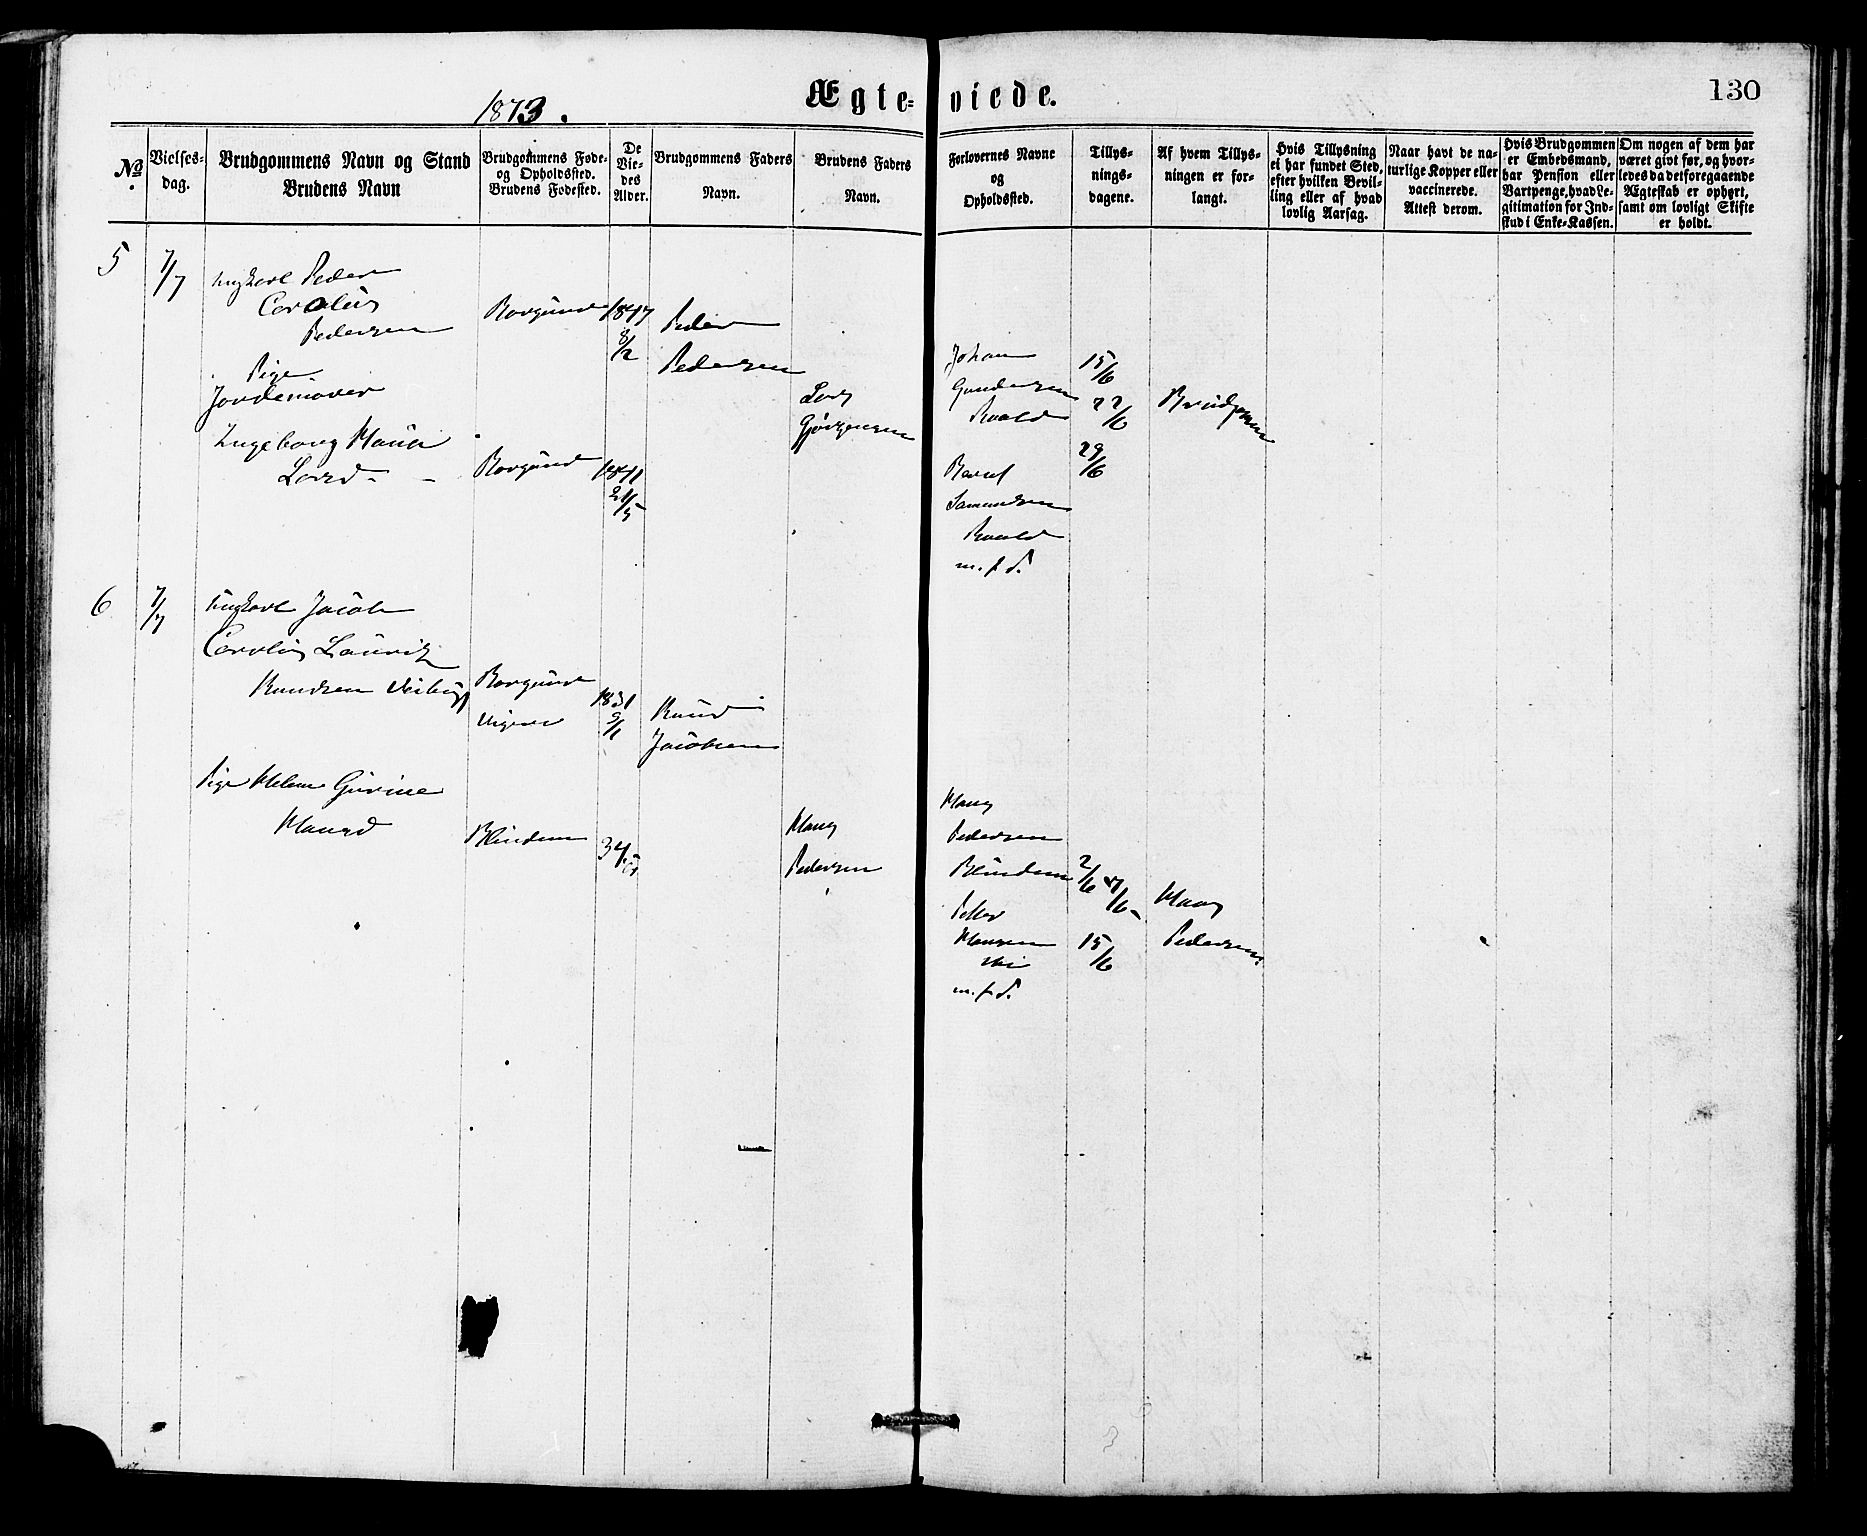 1873.
Ægte-viede.
130
No.
Vielses-
dag.
Brudgommens Navn og Stand
Brudens Navn
Brudgommens Føde-
og Opholdssted.
Brudens Fødested.
De
Vie-
des
Alder.
Brudgommens Faders
Navn.
Brudens Faders
Navn.
Forlovernes Navne
og
Opholdssted.
Tillys-
nings-
dagene.
Af hvem Tillys-
ningen er for-
langt.
Hvis Tillysning
ei har fundet Sted,
efter hvilken Bevil-
ling eller af hvad
lovlig Aarsag.
Naar havt de na-
turlige Kopper eller
vaccinerede.
Attest derom.
Hvis Brudgommen
er Embedsmand,
har Pension eller
Vartpenge, hvad Le-
gitimation for Ind-
skud i Enke-Kassen.
Om nogen af dem har
været givt før, og hvor-
ledes da det foregaaende
Ægteskab er ophørt,
samt om lovligt Skifte
er holdt.
5
7/7
Ungkarl Peder
Carolus
Pedersen
Pige
Jordemoder
Ingeborg Hansi
Larsd
Borgund
Borgund
8/2
21/5
Peder
Pedersen
Lars
Gjørgensen
Johan
Gundersen
Roald
Bernt
Samundsen
Roald
m. f. d.
15/6
22/6
29/6
Brudgommen
6
7/7
Ungkarl Jacob
Carolus Lauritz
Knudsen
Borgund
Vigra
Blindem
1831
9/1
34
Knud
Jacobsen
Pige Helene Gurine
Hansd
Hans
Pedersen
Hans
Pedersen
Blindem
Petter
Hansen
m. f. d.
2/6
15/6
Hans
Pedersen